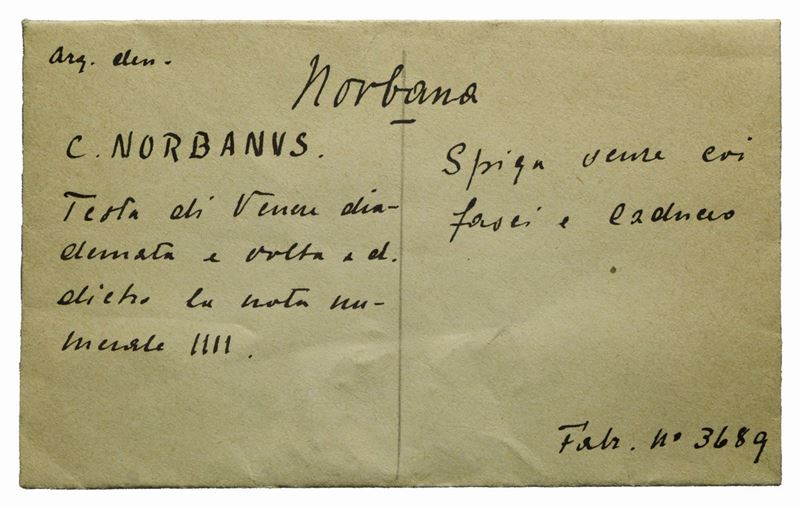 Arg. den.
Norbana
C. NORBANVS.
Testa di Venere dia-
demata e volta a d.
dietro la nota nu-
merale IIII.
Spiga verse coi
fasci e Caduceo
Fabr. Nº 3689